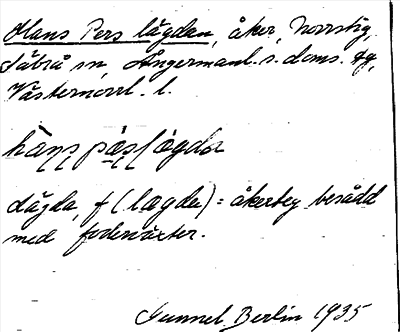 Hans Pers lägdan, åker, Norrstig,
Säbrå sn, Ångermanl. s. doms. tg,
Västernorrl. l.
hans pas lögda
lägda, f (lagda) = åkerteg besådd
med foderväxter.
Gunnel Berlin 1935